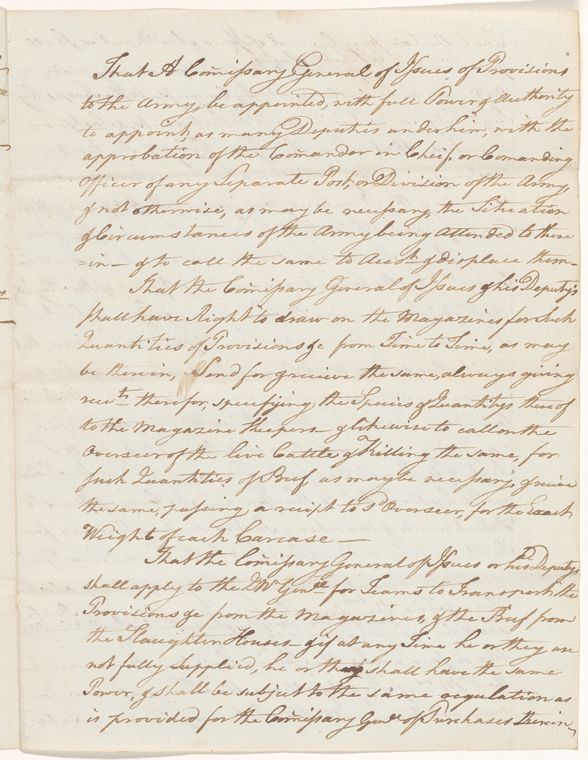 That A Comissary General of Issues of Provisions
to the Army, be appointed, with full Power & Authority
to appoint, as many Deputies under him, with the
approbation of the Comander in Cheif, or Comanding
Officer of any Separate Post, or Division of the Army,
& not otherwise, as may be necessary, the Situation
& Circumstances of the Army being Attended to there
=in— & to call the same to Acct. & displace them—
That the Comissary General of Issues & his Deputys
shall have Right to draw on the Magazines for Such
Quantities of Provisions &c from Time to Time, as may
be therein, Send for & receive the same, always giving
rects. therefor, specifying the Species & Quantitys thereof
to the Magazine Keepers— & likewise to call on the
Overseer of the live Cattle & Killing the same, for
such Quantities of Beef as may be necessary, & receive
the same, passing a receipt to sd. Overseer, for the Exact
Weight of each Carcase—
That the Comissary General of Issues or his Deputys
shall apply to the QMr Genll. for Teams to Transport the
Provisions &c from the Magazines, & the Beef from
the Slaughter Houses— & if at any Time he or they are
not fully supplied, he or they shall have the same
Power, & shall be subject to the same regulation as
is provided for the Comissary Genll. of Purchases therein,